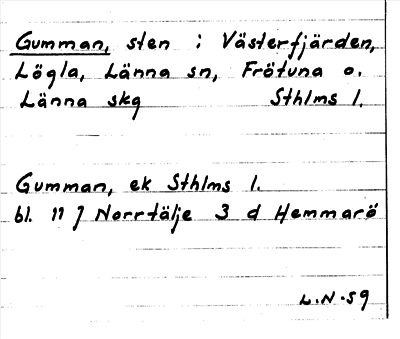 Gumman, sten i Västerfjärden,
Lögla, Länna sn, Frötuna o.
Länna skg Sthlms l.
Gumman, ek Sthlms l.
bl. 11 J Norrtälje 3 d Hemmarö
L.N.59